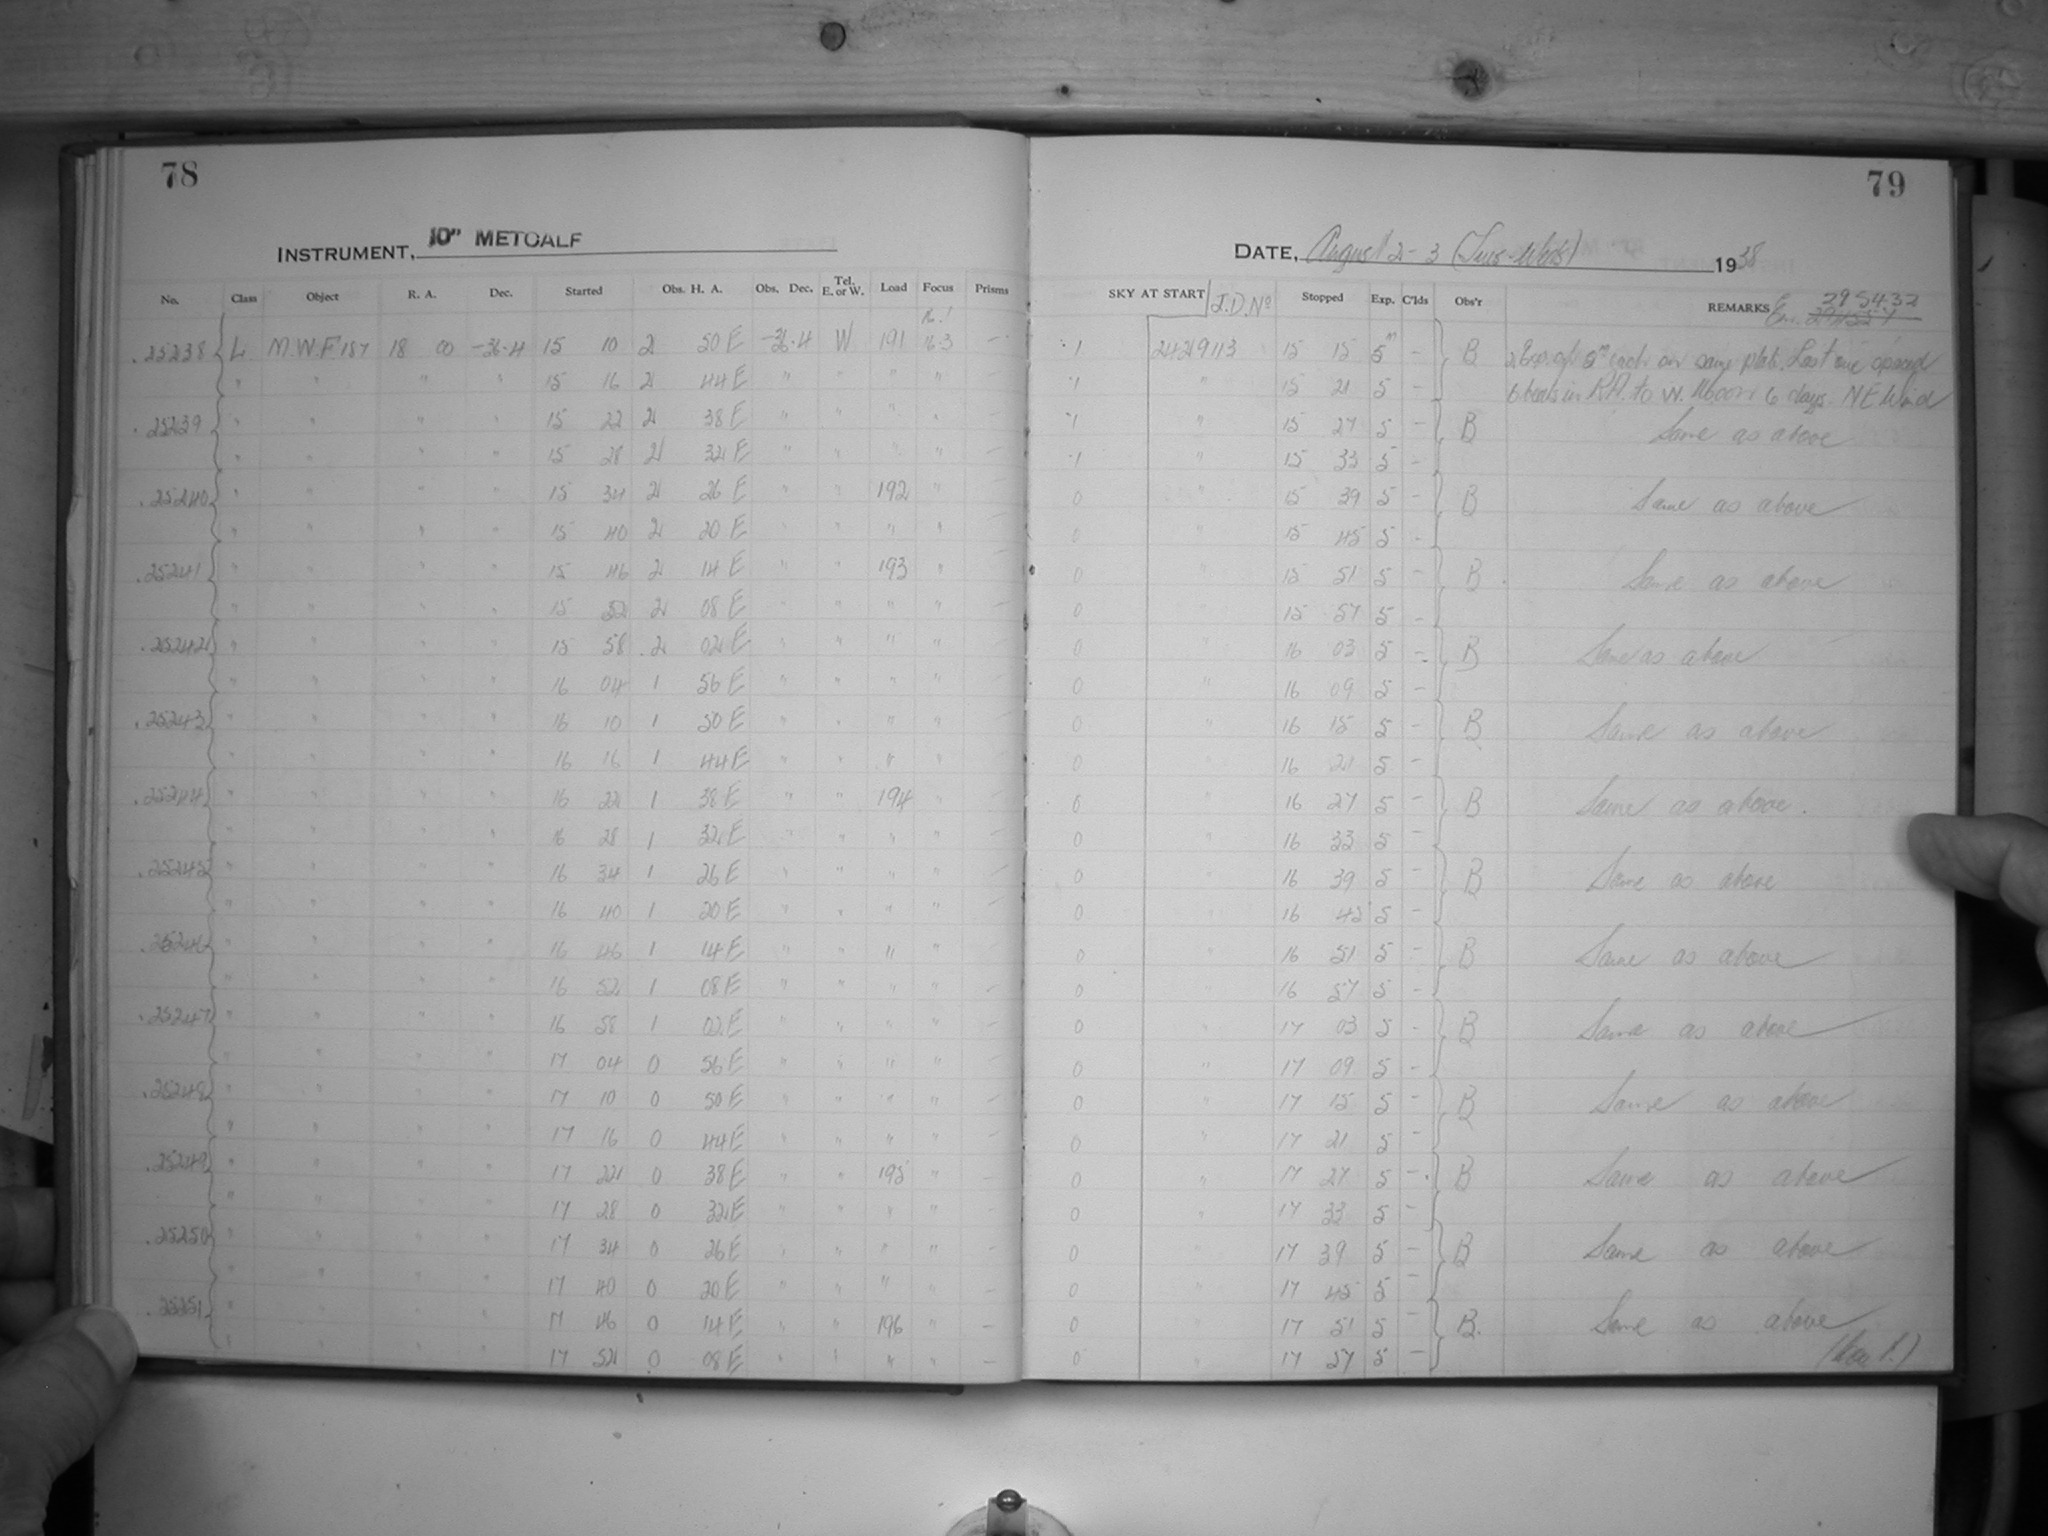 78
INSTRUMENT, 10" METCALF
No. Class Object R. A. Dec. Started Obs. H. A. Obs. Dec. Tel. E. or W. Load Focus Prisms
25238 L M.W.F 187 18 00 -26.4 15 10 2 50 E -26.4 W 191 16.3 –
" " " " 15 16 2 44 E " " " " –
25239 " " " " 15 22 2 38 E " " " " –
" " " " 15 28 2 32 E " " " " –
25240 " " " " 15 34 2 26 E " " 192 " –
" " " " 15 40 2 20 E " " " " –
25241 " " " " 15 46 2 14 E " " 193 " –
" " " " 15 52 2 08 E " " " " –
25242 " " " " 15 58 2 02 E " " " " –
" " " " 16 04 1 56 E " " " " –
25243 " " " " 16 10 1 50 E " " " " –
" " " " 16 16 1 44 E " " " " –
25244 " " " " 16 22 1 38 E " " 194 " –
" " " " 16 28 1 32 E " " " " –
25245 " " " " 16 34 1 26 E " " " " –
" " " " 16 40 1 20 E " " " " –
25246 " " " " 16 46 1 14 E " " " " –
" " " " 16 52 1 08 E " " " " –
25247 " " " " 16 58 1 02 E " " " " –
" " " " 17 04 0 56 E " " " " –
25248 " " " " 17 10 0 50 E " " " " –
" " " " 17 16 0 44 E " " " " –
25249 " " " " 17 22 0 38 E " " 195 " –
" " " " 17 28 0 32 E " " " " –
25250 " " " " 17 34 0 26 E " " " "
" " " " 17 40 0 20 E " " "
25251 " " " " 17 46 0 14 E " " 196 " –
" " " " 17 52 0 08 E " " " " –
79
DATE, August 2-3 (Tues-Weds) 1938
SKY AT START J.D. No Stopped Exp. C'lds Obs'r REMARKS
295432
1 2429113 15 15 5m – B 2 Exp. of 5m each on same plate. Last one spaced
1 " 15 21 5 – 6 beats in R.A. to W. Moon 6 days. NE Wind
1 " 15 27 5 – B Same as above
1 " 15 33 5 –
0 " 15 39 5 – B Same as above
0 " 15 45 5 –
0 " 15 51 5 – B Same as above
0 " 15 57 5 –
0 " 16 03 5 – B Same as above
0 " 16 09 5 –
0 " 16 15 5 – B Same as above
0 " 16 21 5 –
0 " 16 27 5 – B Same as above.
0 " 16 33 5 –
0 " 16 39 5 – B Same as above
0 " 16 45 5 –
0 " 16 51 5 – B Same as above
0 " 16 57 5 –
0 " 17 03 5 – B Same as above
0 " 17 09 5 –
0 " 17 15 5 – B Same as above
0 " 17 21 5 –
0 " 17 27 5 – B Same as above
0 " 17 33 5 –
0 " 17 39 5 – B Same as above
0 " 17 45 5 –
0 " 17 51 5 – B. Same as above
0 " 17 57 5 –